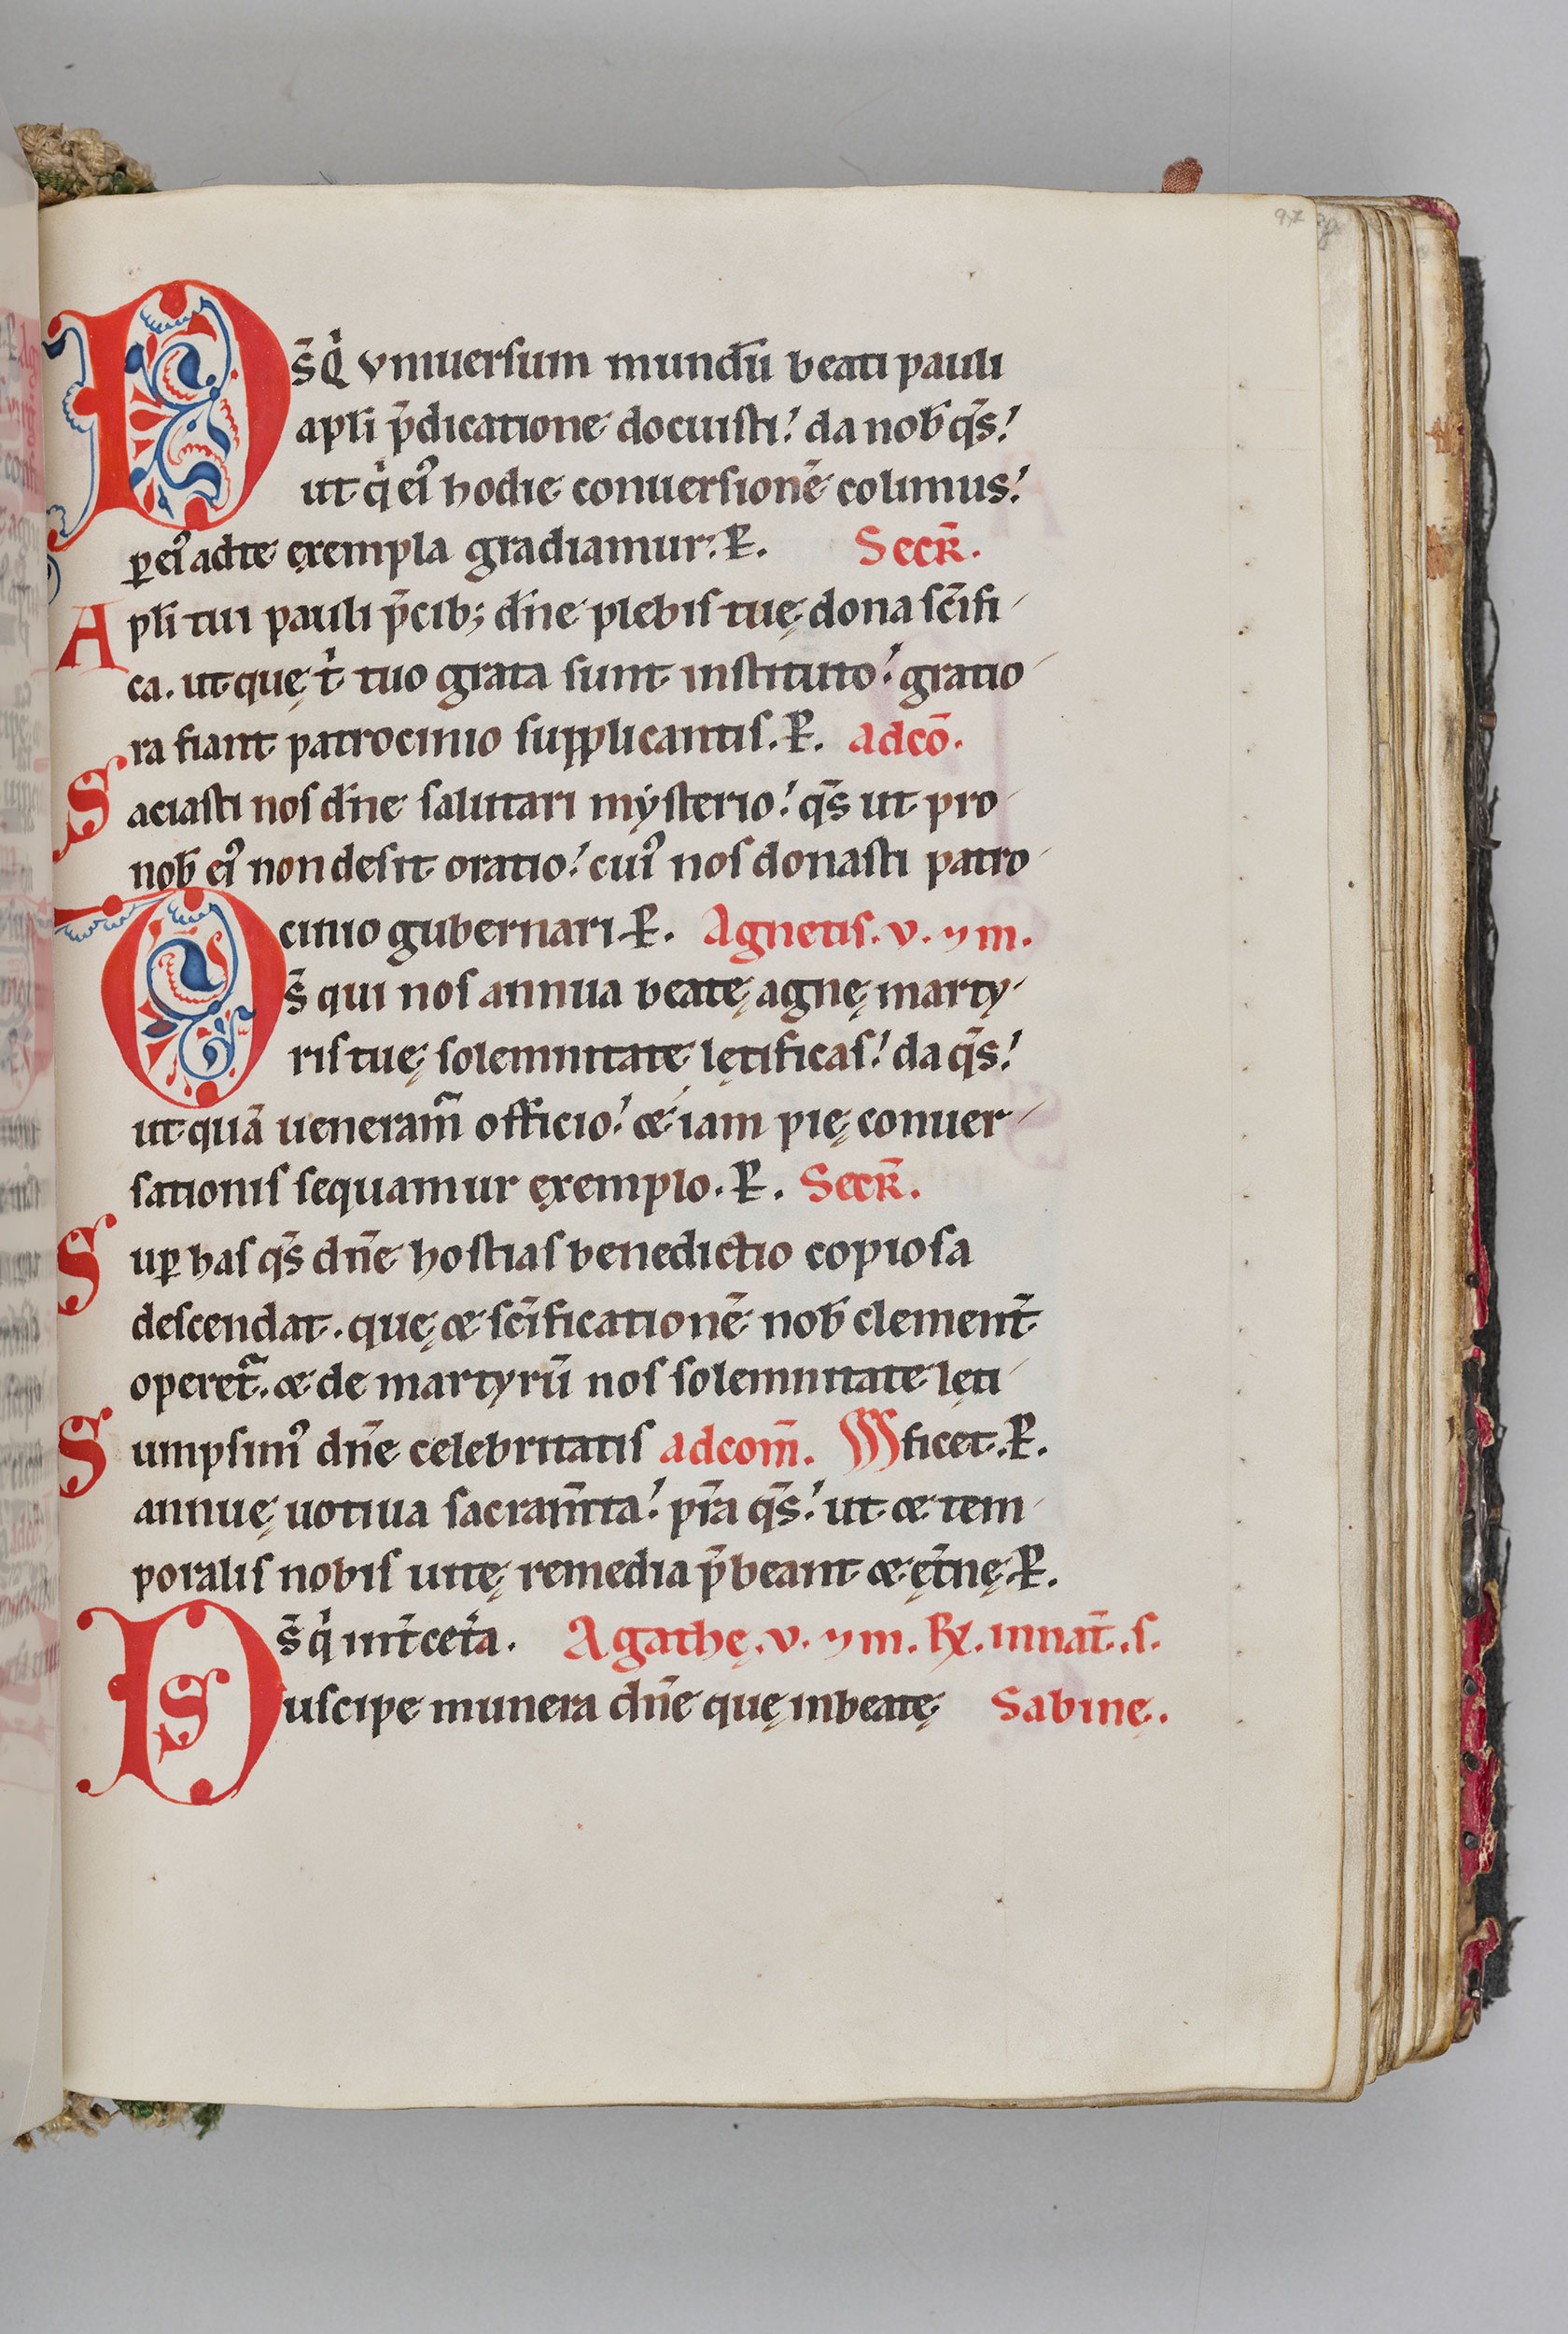 97
Ds̄ Qͥ vniuerſum mundū beati pauli
apłi p̄dicatione docuiſti! da nob̄ q̄s!
ut qͥ ei᾿ hodie conuerſionē colimus!
ꝑ ei᾿ adte exempla gradiamur. P̄. Secr̄.
Apłi tui pauli p̄cib; dn̄e plebiſ tuę dona ſc̄ifi
ca. ut quę tͥ tuo grata ſunt inſtituto! gratio
ra fiant patrocinio ſupplicantiſ. P̄. adcō.
Saciaſti noſ dn̄e ſalutari myſterio! q̄s ut pro
nob̄ ei᾿ non deſit oratio! cui᾿ noſ donaſti patro
cinio gubernari. P̄. Agnetiſ. v. ⁊ m.
Ds̄ qui noſ annua beatę agnę marty
riſ tuę ſolemnitate lętificaſ! da q̄s!
ut quā ueneram̄ officio! & iam pię conuer
ſationiſ ſequamur exemplo. P̄. Secr̄.
Suꝑ haſ q̄s dn̄e hoſtiaſ benedictio copioſa
deſcendat. quę & ſc̄ificationē nob̄ clement̄
operet᷑. & de martyrū noſ ſolemnitate lęti
Sumpſim᾿ dn̄e celebritatiſ adcom̄. ficet. P̄.
annuę uotiua ſacram̄ta! pr̄a q̄s! ut & tem
poraliſ nobiſ uitę remedia p̄beant & ęt̄nę. P̄.
Ds̄ qͥ int̄ cet̄a. Agathę. v. ⁊ m. R̄. innat̄. ſ.
Suſcipe munera dn̄e quę inbeatę Sabinę.